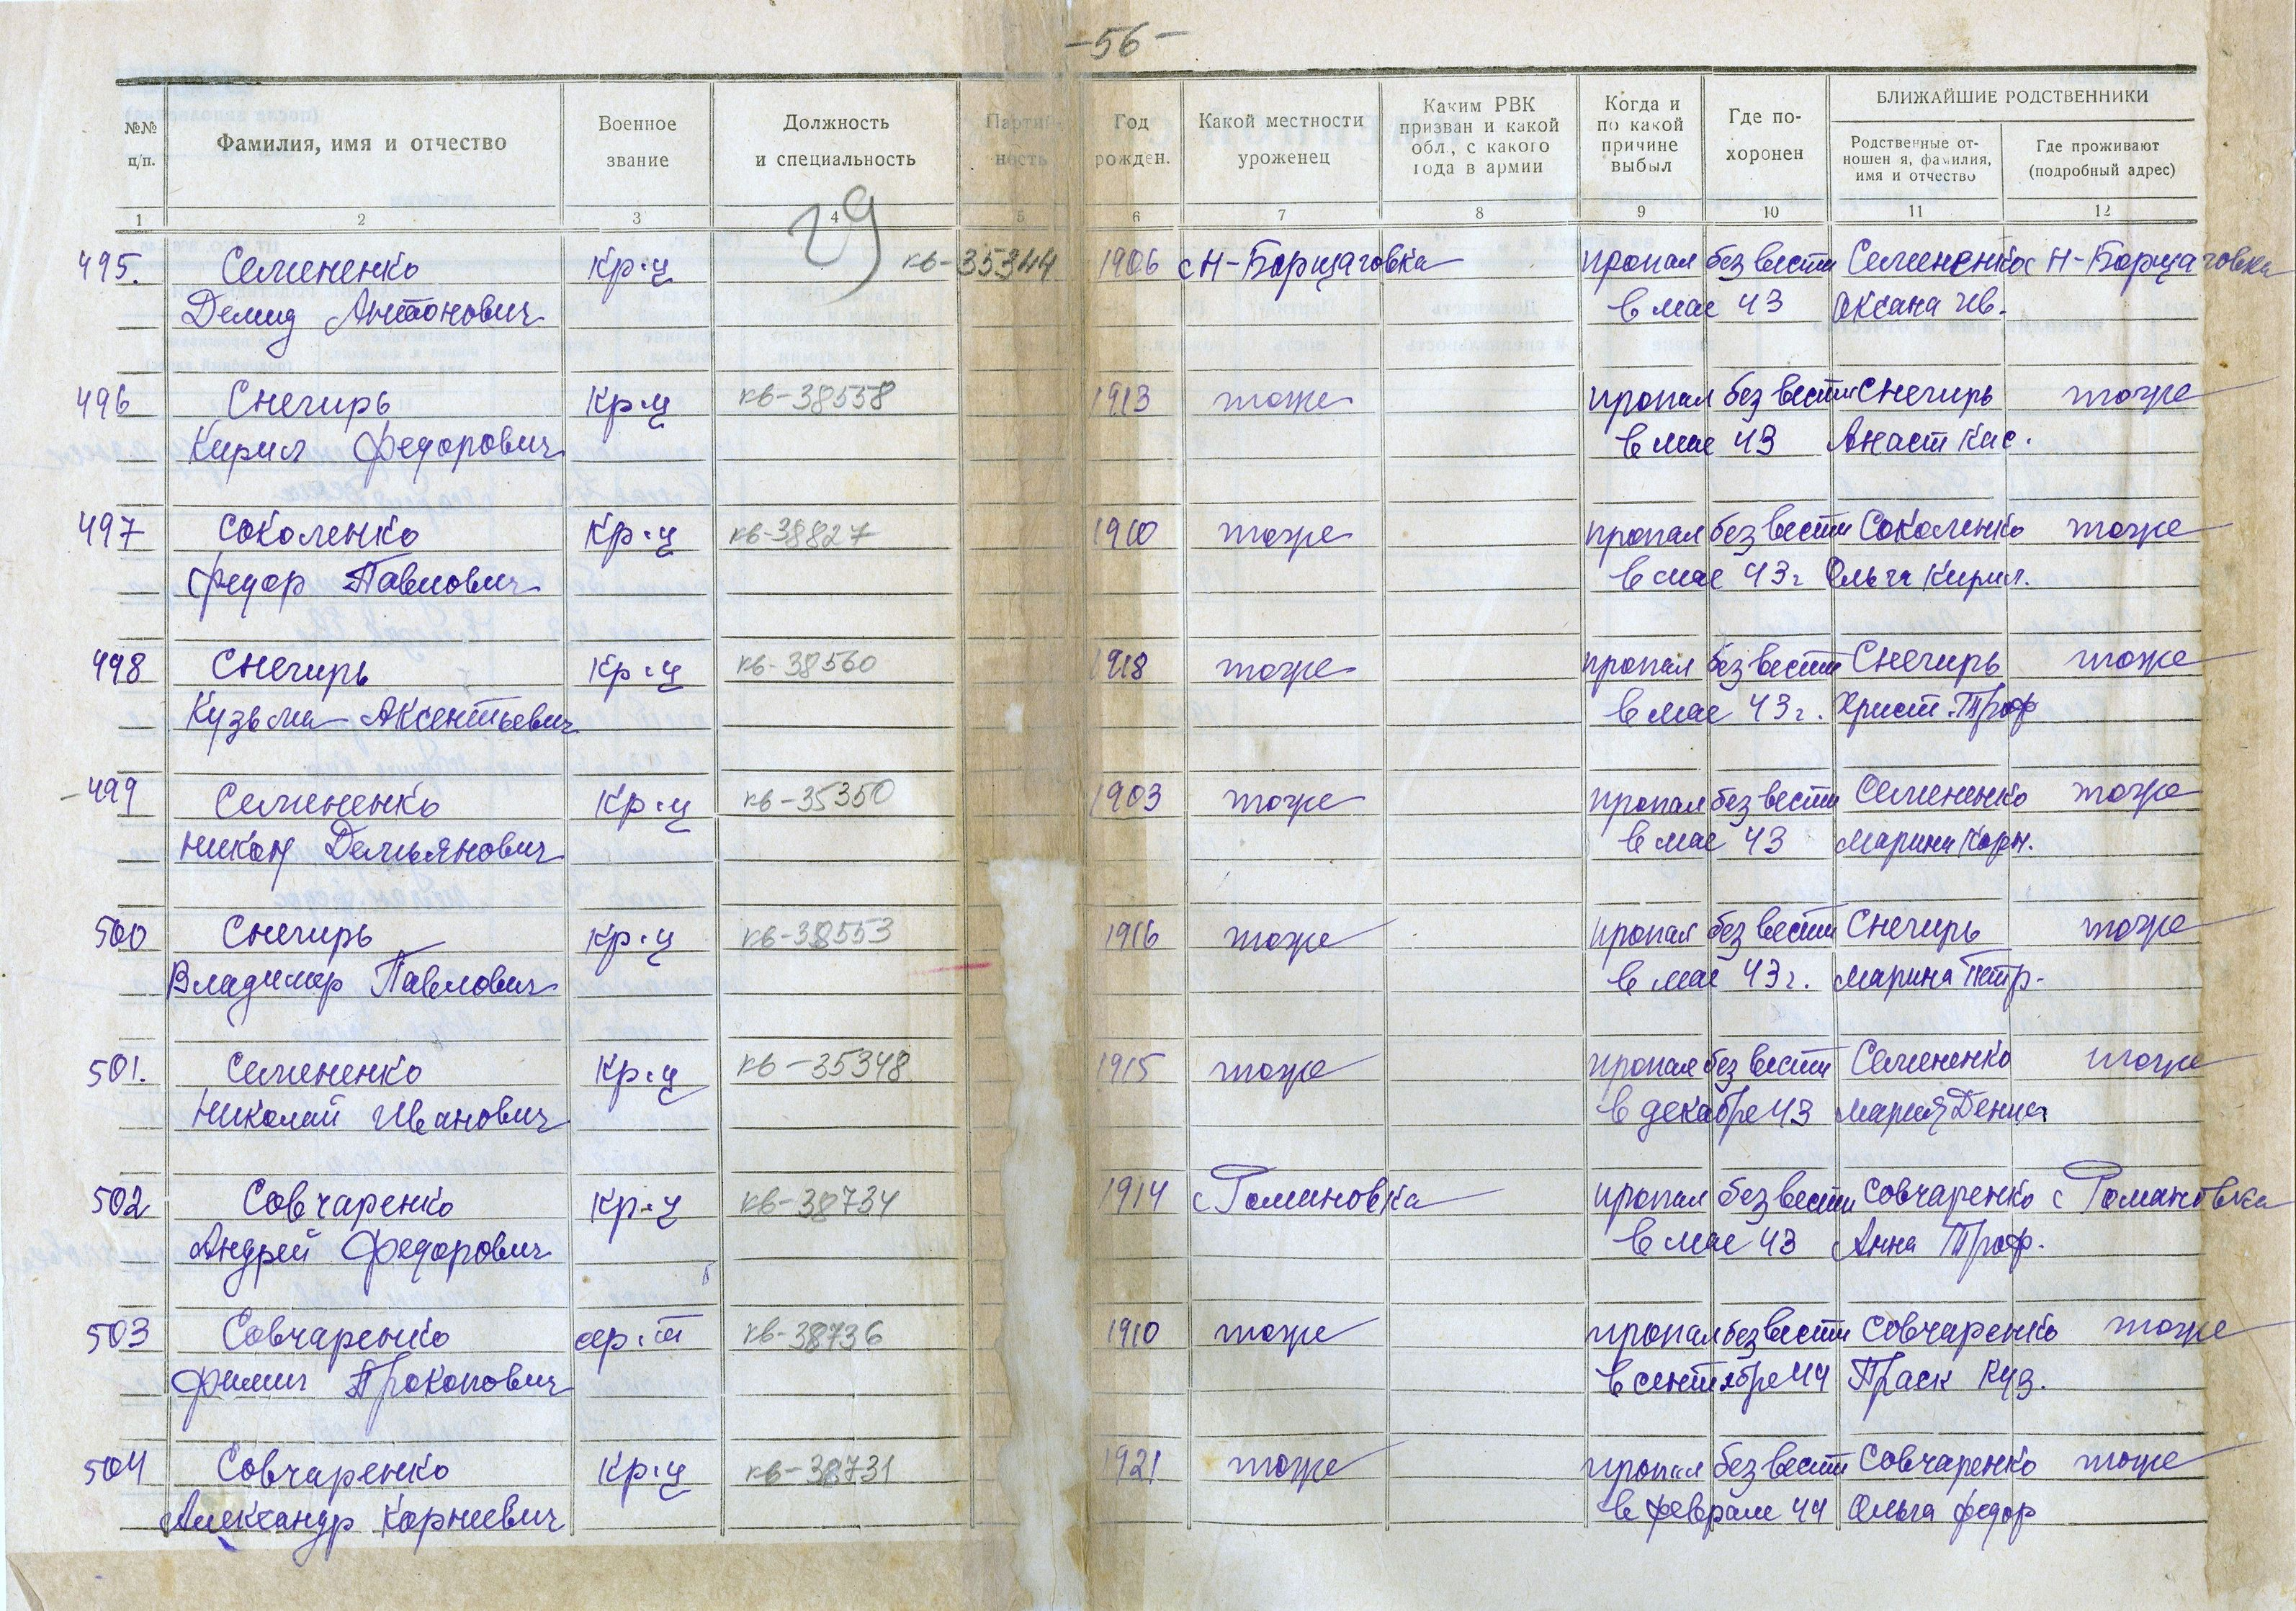 -56-
№№ п/п.
Фамилия, имя и отчество
Военное звание
Должность и специальность
Партийность
Год рожден.
Какой местности уроженец
Каким РВК призван и какой обл., с какого года в армии
Когда и по какой причине выбыл
Где похоронен
БЛИЖАЙШИЕ РОДСТВЕННИКИ
Родственные отношен я, фамилия, имя и отчество
Где проживают (подробный адрес)
1 2 3 4 5 6 7 8 9 10 11 12
29
495. Семененко Кр-ц кв-35344 1906 с Н-Борщаговка пропал без вести Семененко с Н-Борщаговка
Демид Антонович в мае 43 Оксана Ив.
496 Снегирь Кр-ц кв-38558 1913 тоже пропал без вести Снегирь тоже
Кирил Федорович в мае 43 Анаст Кас.
497 Соколенко Кр-ц кв-38827 1910 тоже пропал без вести Соколенко тоже
Федор Павлович в мае 43г Ольга Кирил.
498 Снегирь Кр-ц кв-38560 1918 тоже пропал без вести Снегирь тоже
Кузьма Аксентьевич в мае 43г. Христ. Троф
499 Семененко Кр-ц кв-35350 1903 тоже пропал без вести Семененко тоже
Никон Демьянович в мае 43 Марина Корн.
500 Снегирь Кр-ц кв-38553 1916 тоже пропал без вести Снегирь тоже
Владимир Павлович в мае 43г. Марина Петр.
501. Семененко Кр-ц кв-35348 1915 тоже пропал без вести Семененко тоже
Николай Иванович в декабре 43 Мария Денис
502 Совчаренко Кр-ц кв-38734 1914 с Романовка пропал без вести Совчаренко с Романовка
Андрей Федорович в мае 43 Анна Троф.
503 Совчаренко сер-т кв-38736 1910 тоже пропал без вести Совчаренко тоже
Филип Прокопович в сентябре 44 Праск Куз.
504 Совчаренко Кр-ц кв-38731 1921 тоже пропал без вести Совчаренко тоже
Александр Корнеевич в феврале 44 Ольга Федор